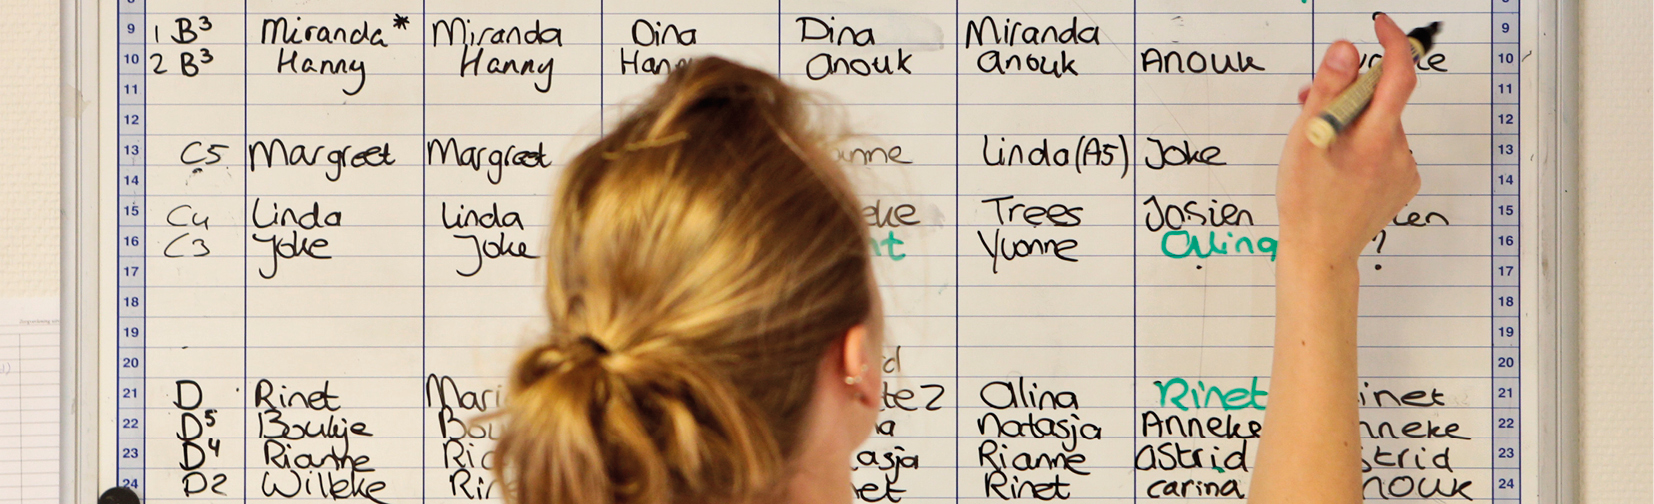 9 1 B³ Miranda* Miranda Dina Dina Miranda 9
10 2 B³ Hanny Hanny Anouk Anouk Anouk 10
11 11
12 12
13 C5 Margreet Margreet Linda (A5) Joke 13
14 14
15 C4 Linda Linda Trees Josien 15
16 C3 Joke Joke Yvonne Alina ? 16
17 17
18 18
19 19
20 20
21 D Rinet Alina Rinet 21
22 D5 Boukje Natasja Anneke 22
23 D4 Rianne Rianne Astrid 23
24 D2 Willeke Rinet carina 24